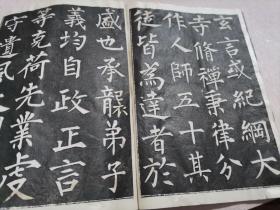 玄言或紀綱大
寺修禪秉律分
作人師五十其
徒皆為達者於
盛也承襲弟子
義均自政正言
等克荷先業虔
守遺風